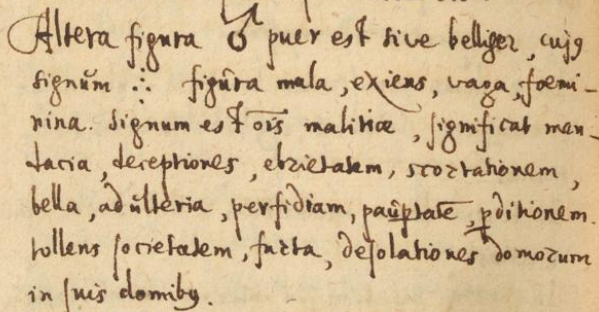 Altera figura ♂ puer est sive belliger, cujꝰ
signum̃ ∴ figũra mala, exiens, vaga, foemi-
nina. Signum est oı̄s malitiæ, significat men-
dacia, deceptiones, ebrietatem, scortationem,
bella, adũlteria, perfidiam, pauꝑtatē, ꝑditionem.
tollens societatem, furta, desolationes domorum
in suis domibꝰ.